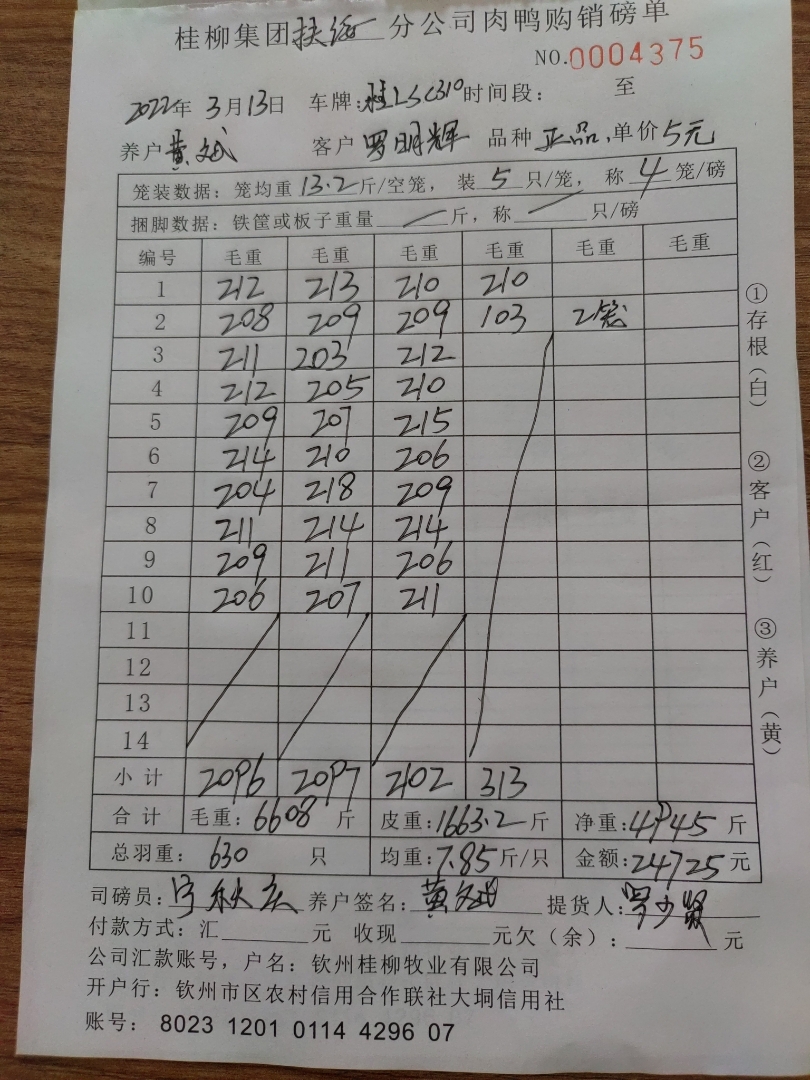 桂柳集团扶绥分公司肉鸭购销磅单
NO.0004375
2022年 3月13日 车牌:桂LSC310 时间段: 至
养户 黄文斌 客户 罗明辉 品种 正品, 单价 5元
笼装数据: 笼均重 13.2 斤/空笼, 装 5 只/笼, 称 4 笼/磅
捆脚数据: 铁筐或板子重量 斤, 称 只/磅
编号 毛重 毛重 毛重 毛重 毛重 毛重
1 212 213 210 210
2 208 209 209 103 2笼
3 211 203 212
4 212 205 210
5 209 207 215
6 214 210 206
7 204 218 209
8 211 214 214
9 209 211 206
10 206 207 211
11
12
13
14
小计 2096 2097 2102 313
合计 毛重: 6608 斤 皮重: 1663.2 斤 净重: 4945 斤
总羽重: 630 只 均重: 7.85 斤/只 金额: 24725 元
司磅员: 养户签名: 黄文斌 提货人: 罗少贤
付款方式: 汇 元 收现 元欠(余): 元
公司汇款账号, 户名: 钦州桂柳牧业有限公司
开户行: 钦州市区农村信用合作联社大垌信用社
账号: 8023 1201 0114 4296 07
①存根(白)
②客户(红)
③养户(黄)